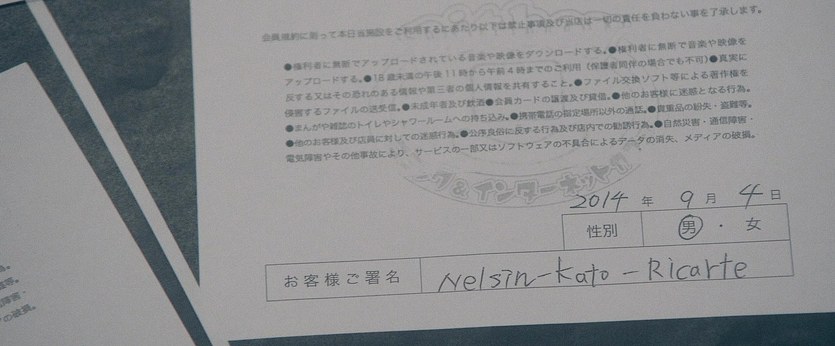 会員規約に則って本日当施設をご利用するにあたり以下は禁止事項及び当店は一切の責任を負わない事を了承します。
●権利者に無断でアップロードされている音楽や映像をダウンロードする。●権利者に無断で音楽や映像を
アップロードする。●18歳未満の午後11時から午前4時までのご利用(保護者同伴の場合でも不可)●真実に
反する又はその恐れのある情報や第三者の個人情報を共有すること。●ファイル交換ソフト等による著作権を
侵害するファイルの送受信。●未成年者及び飲酒●会員カードの譲渡及び貸借。●他のお客様に迷惑となる行為。
●まんがや雑誌のトイレやシャワールームへの持ち込み。●携帯電話の指定場所以外の通話。●貴重品の紛失・盗難等。
●他のお客様及び店員に対しての迷惑行為。●公序良俗に反する行為及び店内での勧誘行為。●自然災害・通信障害・
電気障害やその他事故により、サービスの一部又はソフトウェアの不具合によるデータの消失、メディアの破損。
ーク&インターネット
2014 年 9 月 4 日
性別 男 ・ 女
お客様ご署名 Nelsin-Kato-Ricarte
障害・
の破損。